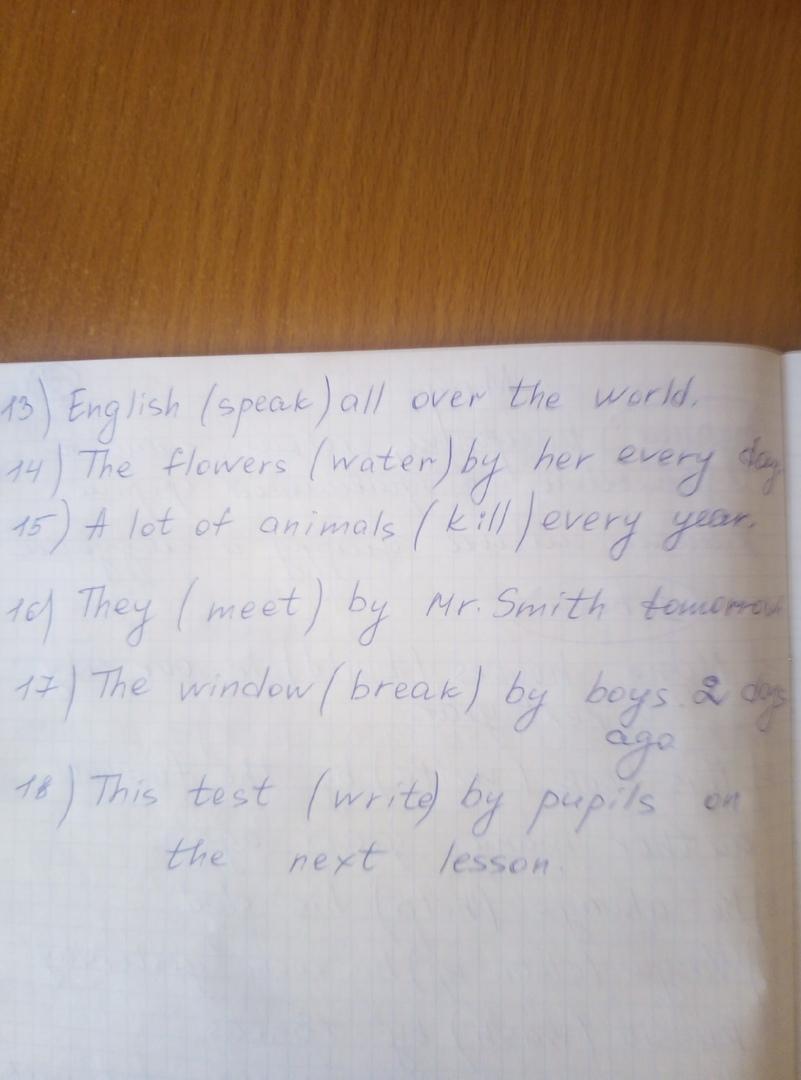 13) English (speak) all over the world.
14) The flowers (water) by her every day.
15) A lot of animals (kill) every year.
16) They (meet) by Mr. Smith tomorrow
17) The window (break) by boys 2 days
ago
18) This test (write) by pupils on
the next lesson.